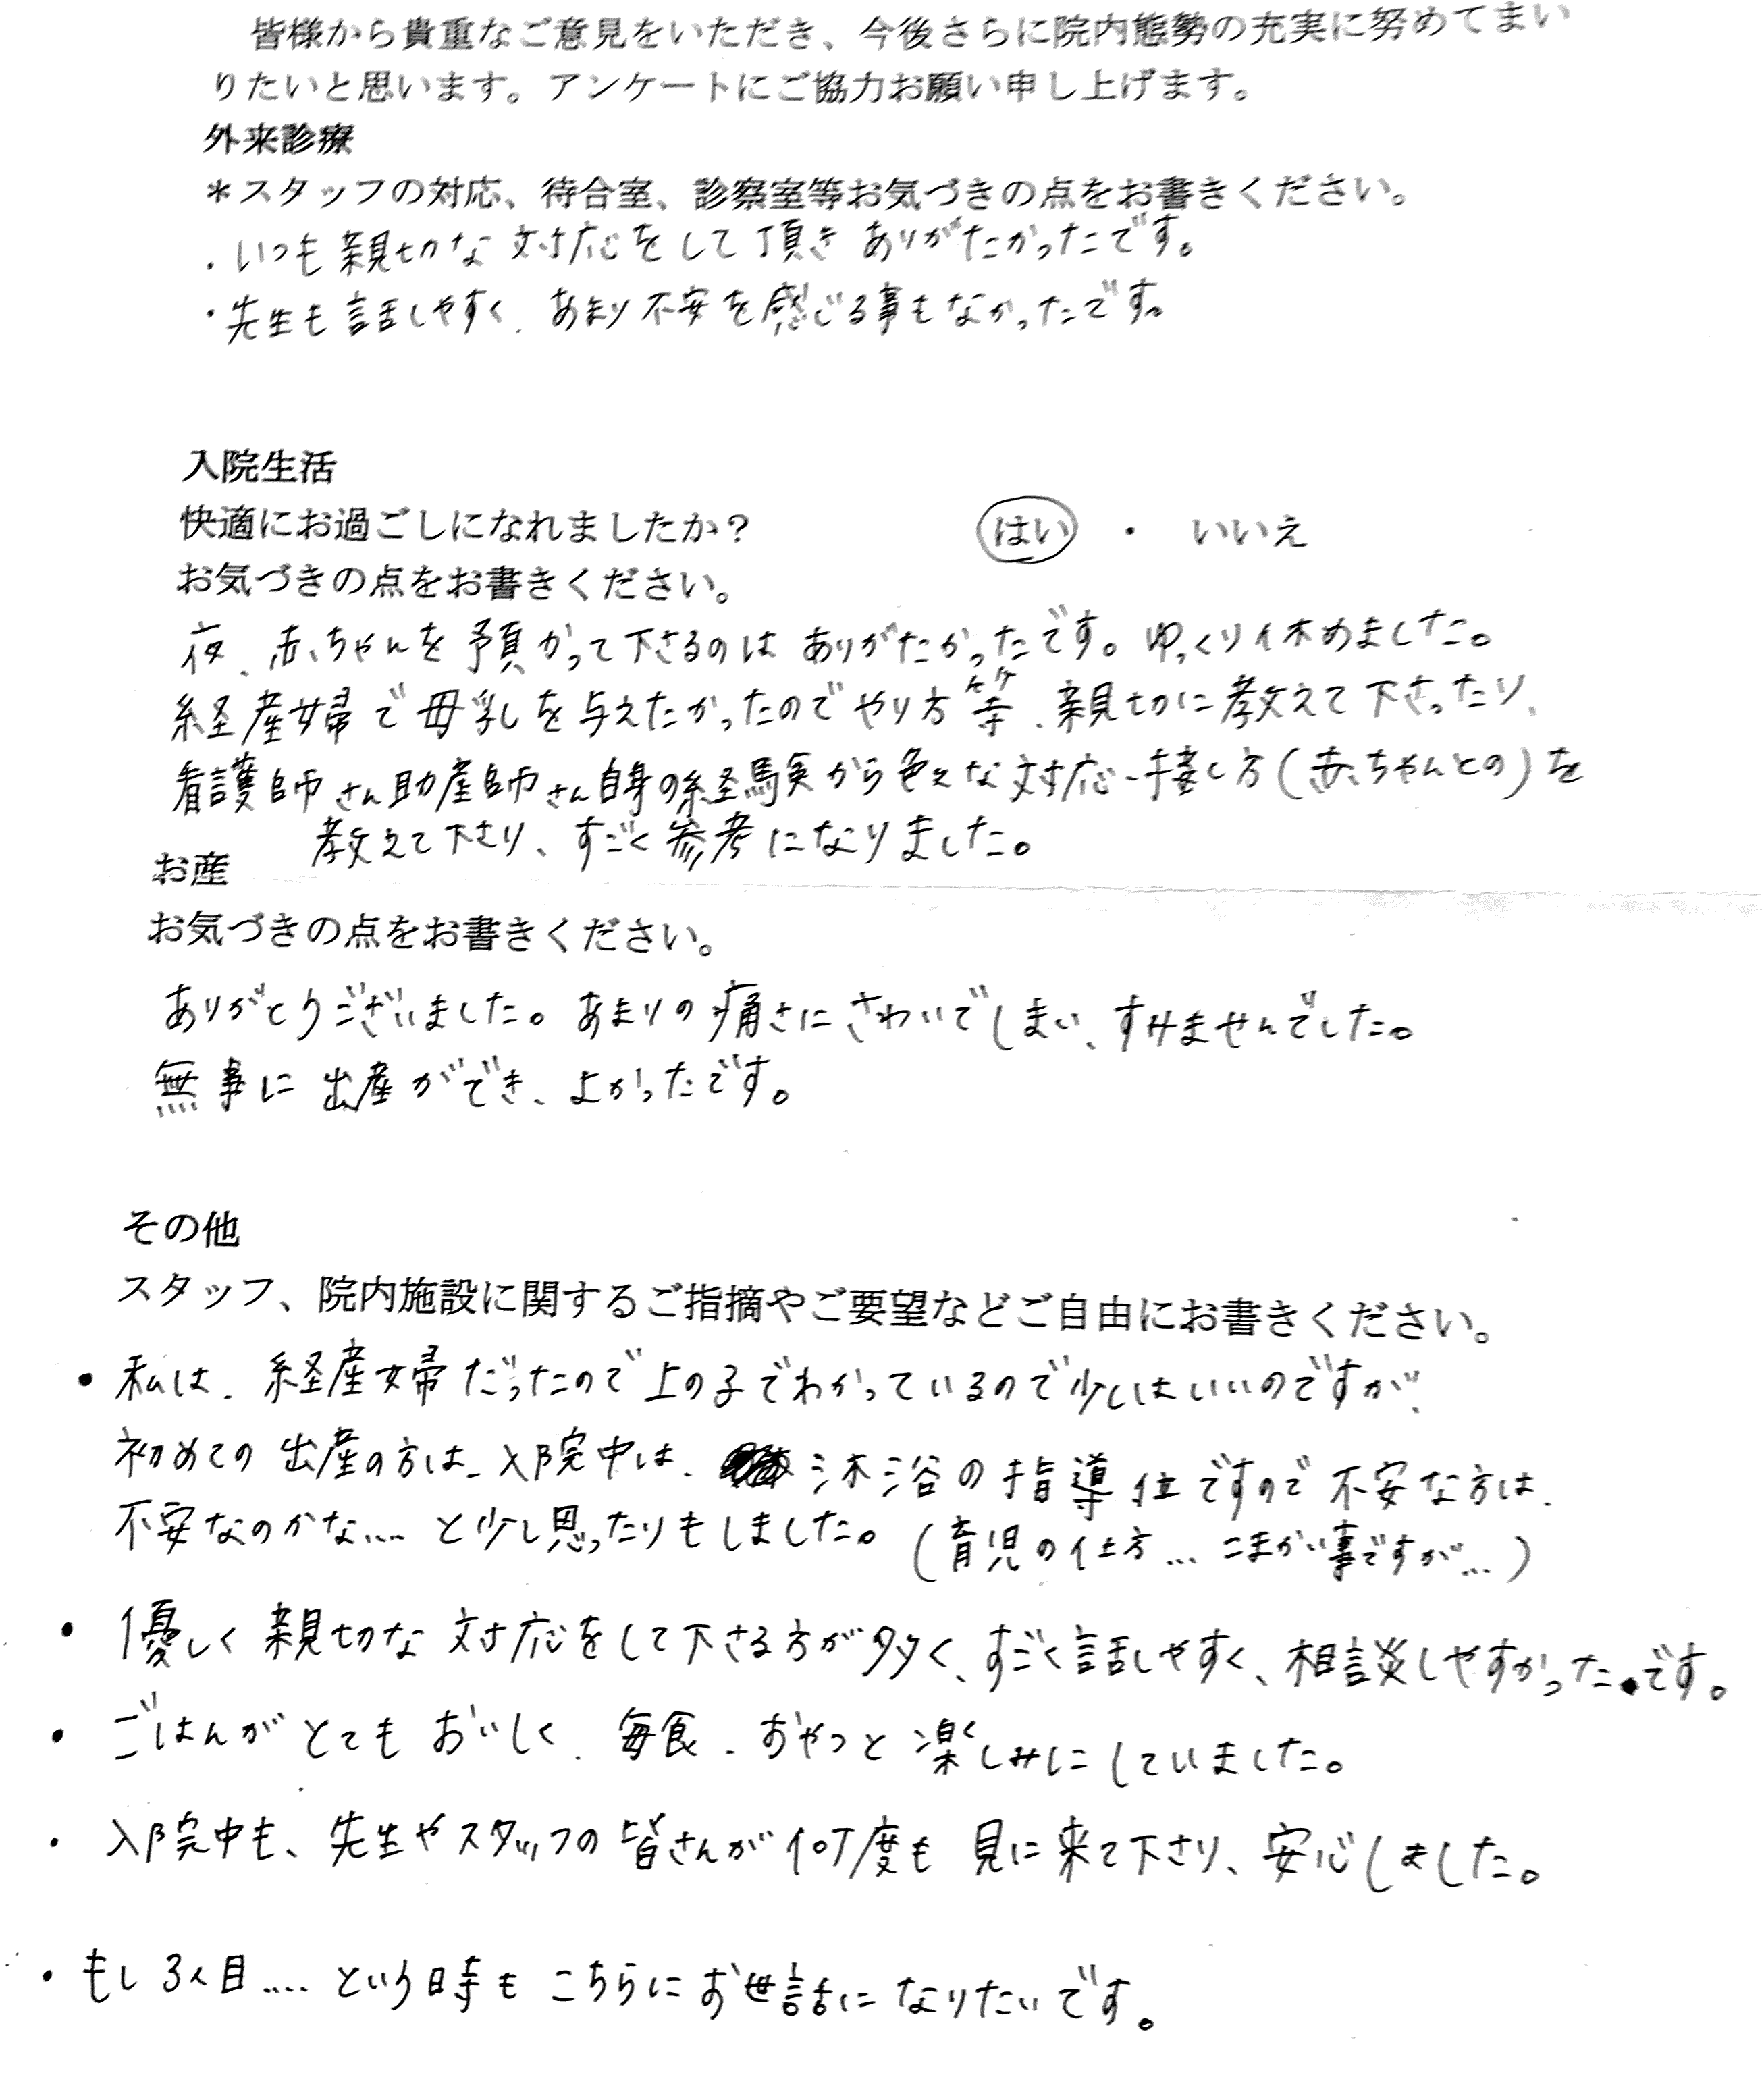 皆様から貴重なご意見をいただき、今後さらに院内態勢の充実に努めてまい
りたいと思います。アンケートにご協力お願い申し上げます。
外来診療
＊スタッフの対応、待合室、診察室等お気づきの点をお書きください。
・いつも親切な対応をして頂き ありがたかったです。
・先生も話しやすく、あまり不安を感じる事もなかったです。
入院生活
快適にお過ごしになれましたか？ はい ・ いいえ
お気づきの点をお書きください。
夜、赤ちゃんを預かって下さるのは ありがたかったです。ゆっくり休めました。
経産婦で母乳を与えたかったのでやり方等、親切に教えて下さったり、
看護師さん助産師さん自身の経験から色々な対応、接し方(赤ちゃんとの)を
教えて下さり、すごく参考になりました。
お産
お気づきの点をお書きください。
ありがとうございました。あまりの痛さにさわいでしまい、すみませんでした。
無事に出産ができ、よかったです。
その他
スタッフ、院内施設に関するご指摘やご要望などご自由にお書きください。
・私は、経産婦だったので上の子でわかっているので少しはいいのですが、
初めての出産の方は、入院中は、沐浴の指導位ですので不安な方は、
不安なのかな…… と少し思ったりもしました。(育児の仕方… こまかい事ですが…)
・優しく親切な対応をして下さる方が多く、すごく話しやすく、相談しやすかったです。
・ごはんがとてもおいしく、毎食、おやつと楽しみにしていました。
・入院中も、先生やスタッフの皆さんが何度も見に来て下さり、安心しました。
・もし3人目…… という時もこちらにお世話になりたいです。